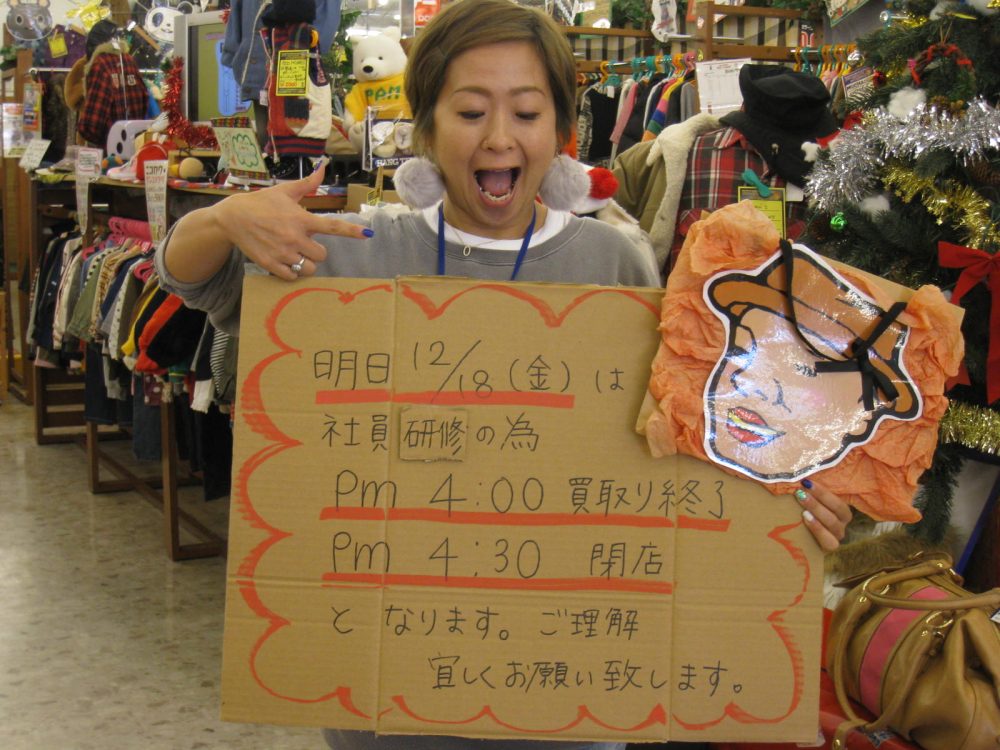 明日 12/18(金)は
社員研修の為
Pm 4:00 買取り終了
Pm 4:30 閉店
となります。ご理解
宜しくお願い致します。